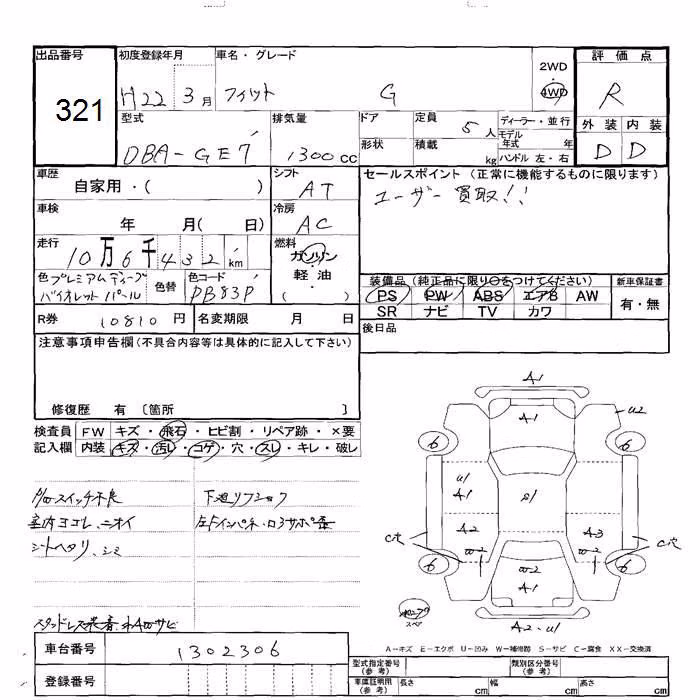 出品番号
321
初度登録年月
H22 3月
車名・グレード
フィット G
2WD
・
4WD
評価点
R
外装 内装
D D
型式
DBA-GE7
排気量
1300cc
ドア
形状
定員
5人
積載
kg
ディーラー・並行
モデル
年式 年
ハンドル 左・右
車歴
自家用・( )
シフト
AT
セールスポイント (正常に機能するものに限ります)
ユーザー買取!!
車検
年 月( 日)
冷房
AC
走行
10万6千432km
燃料
ガソリン
軽油
( )
色 プレミアムディープ
バイオレットパール
色替
色コード
PB83P
装備品(純正品に限り○をつけてください)
PS PW ABS エアB AW
SR ナビ TV カワ
新車保証書
有・無
R券 10810円
名変期限 月 日
後日品
注意事項申告欄(不具合内容等は具体的に記入して下さい)
修復歴 有〔箇所 〕
検査員
記入欄
FW キズ・飛石・ヒビ割・リペア跡・×要
内装 キズ・汚レ・コゲ・穴・スレ・キレ・破レ
P/Wスイッチ不良
室内ヨゴレ、ニオイ
シートヘタリ、シミ
下廻リフショク
A1
A-1
U2
6
6
U1
A-1
S1
A-2
A-3
C穴
C穴
W-2
W-2
6
6
W-2
A-1
スペア
A-2・U1
A-キズ E-エクボ U-凹み W-補修跡 S-サビ C-腐食 XX-交換済
車台番号 1302306
登録番号
型式指定番号
(参考)
類別区分番号
(参考)
車庫証明用
(参考)
長さ cm 幅 cm 高さ cm